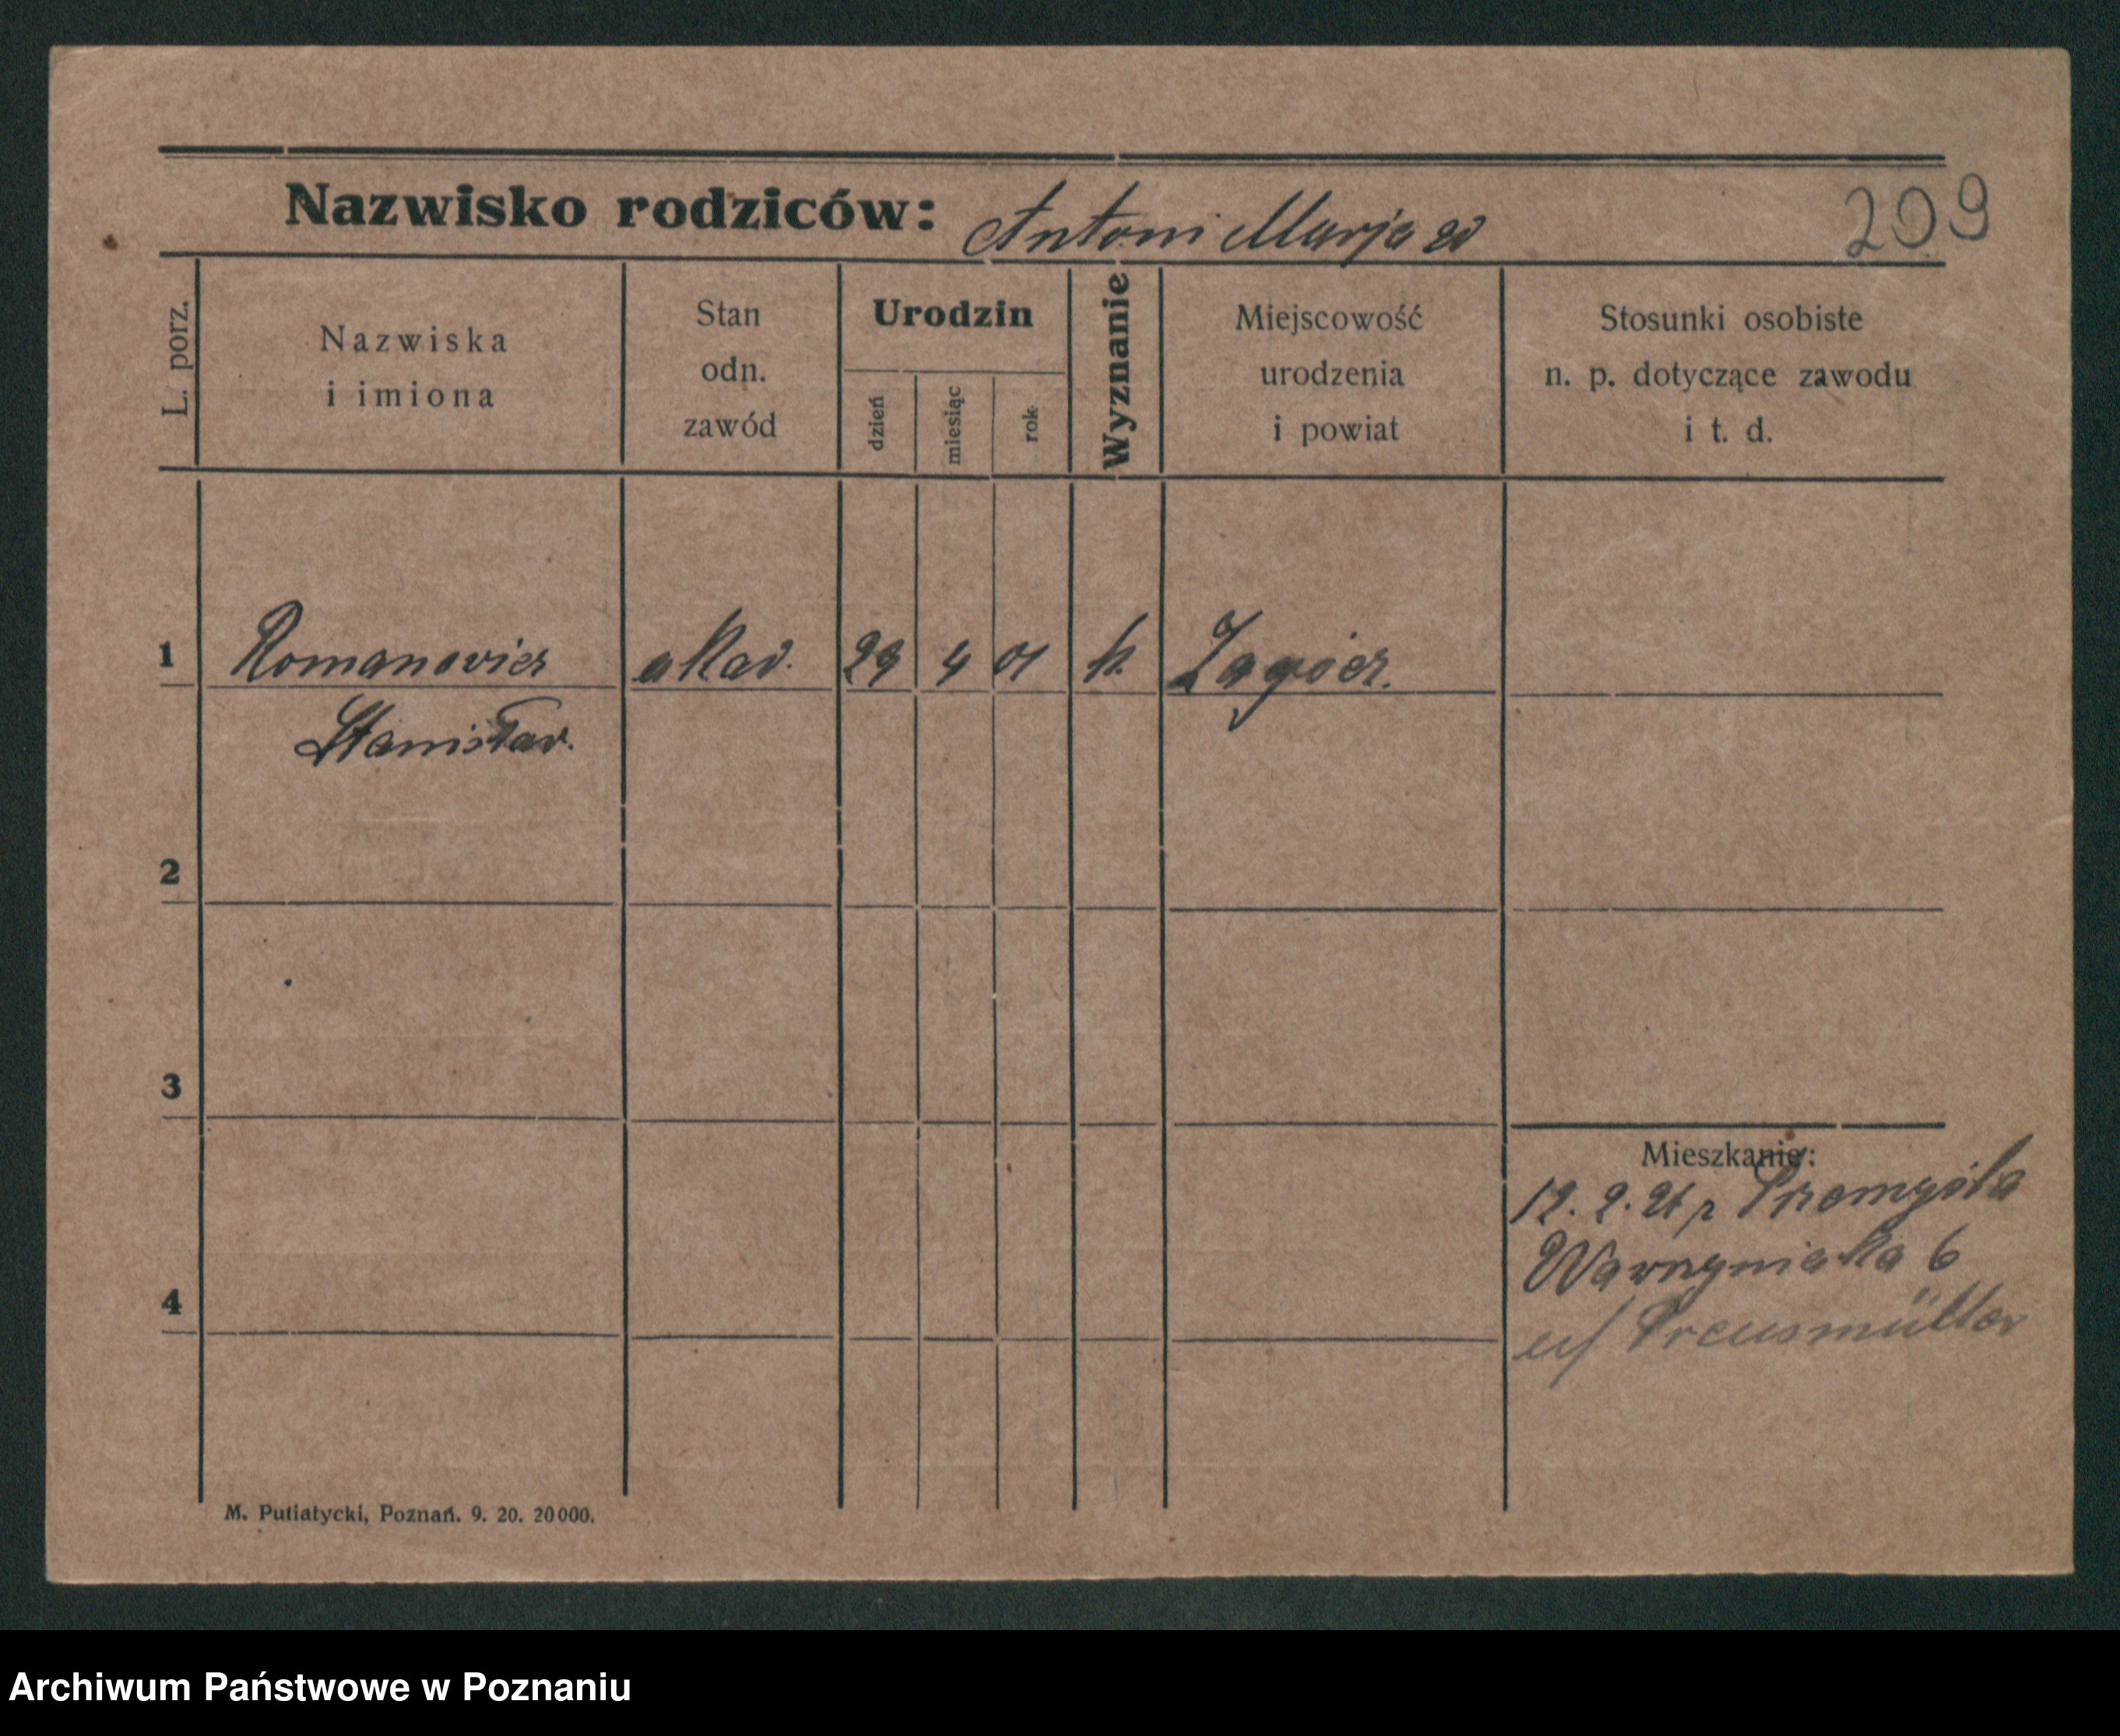 Nazwisko rodziców: Antoni Marja
209
L. porz.
Nazwiska
i imiona
Stan
odn.
zawód
Urodzin
dzień
miesiąc
rok
Wyznanie
Miejscowość
urodzenia
i powiat
Stosunki osobiste
n. p. dotyczące zawodu
i t. d.
1 Romanovicz akad. 29 4 01 k. Zagórz.
Stanisław.
2
3
4
Mieszkanie:
12. 2. 21 z Przemyśla
Wawrzyniaka 6
Preusmüller
M. Putiatycki, Poznań. 9. 20. 20000.
Archiwum Państwowe w Poznaniu